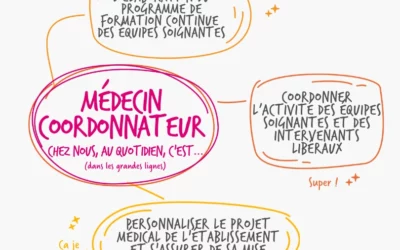 PROGRAMME DE
FORMATION CONTINUE
DES EQUIPES SOIGNANTES
MÉDECIN
COORDONNATEUR
CHEZ NOUS, AU QUOTIDIEN, C'EST...
(dans les grandes lignes)
COORDONNER
L'ACTIVITE DES EQUIPES
SOIGNANTES ET DES
INTERVENANTS
LIBERAUX
Super !
BERSONNALISER LE PROJET
MEDICAL DE L'ETABLISSEMENT
ET S'ASSURER DE SA MISE
Ça je